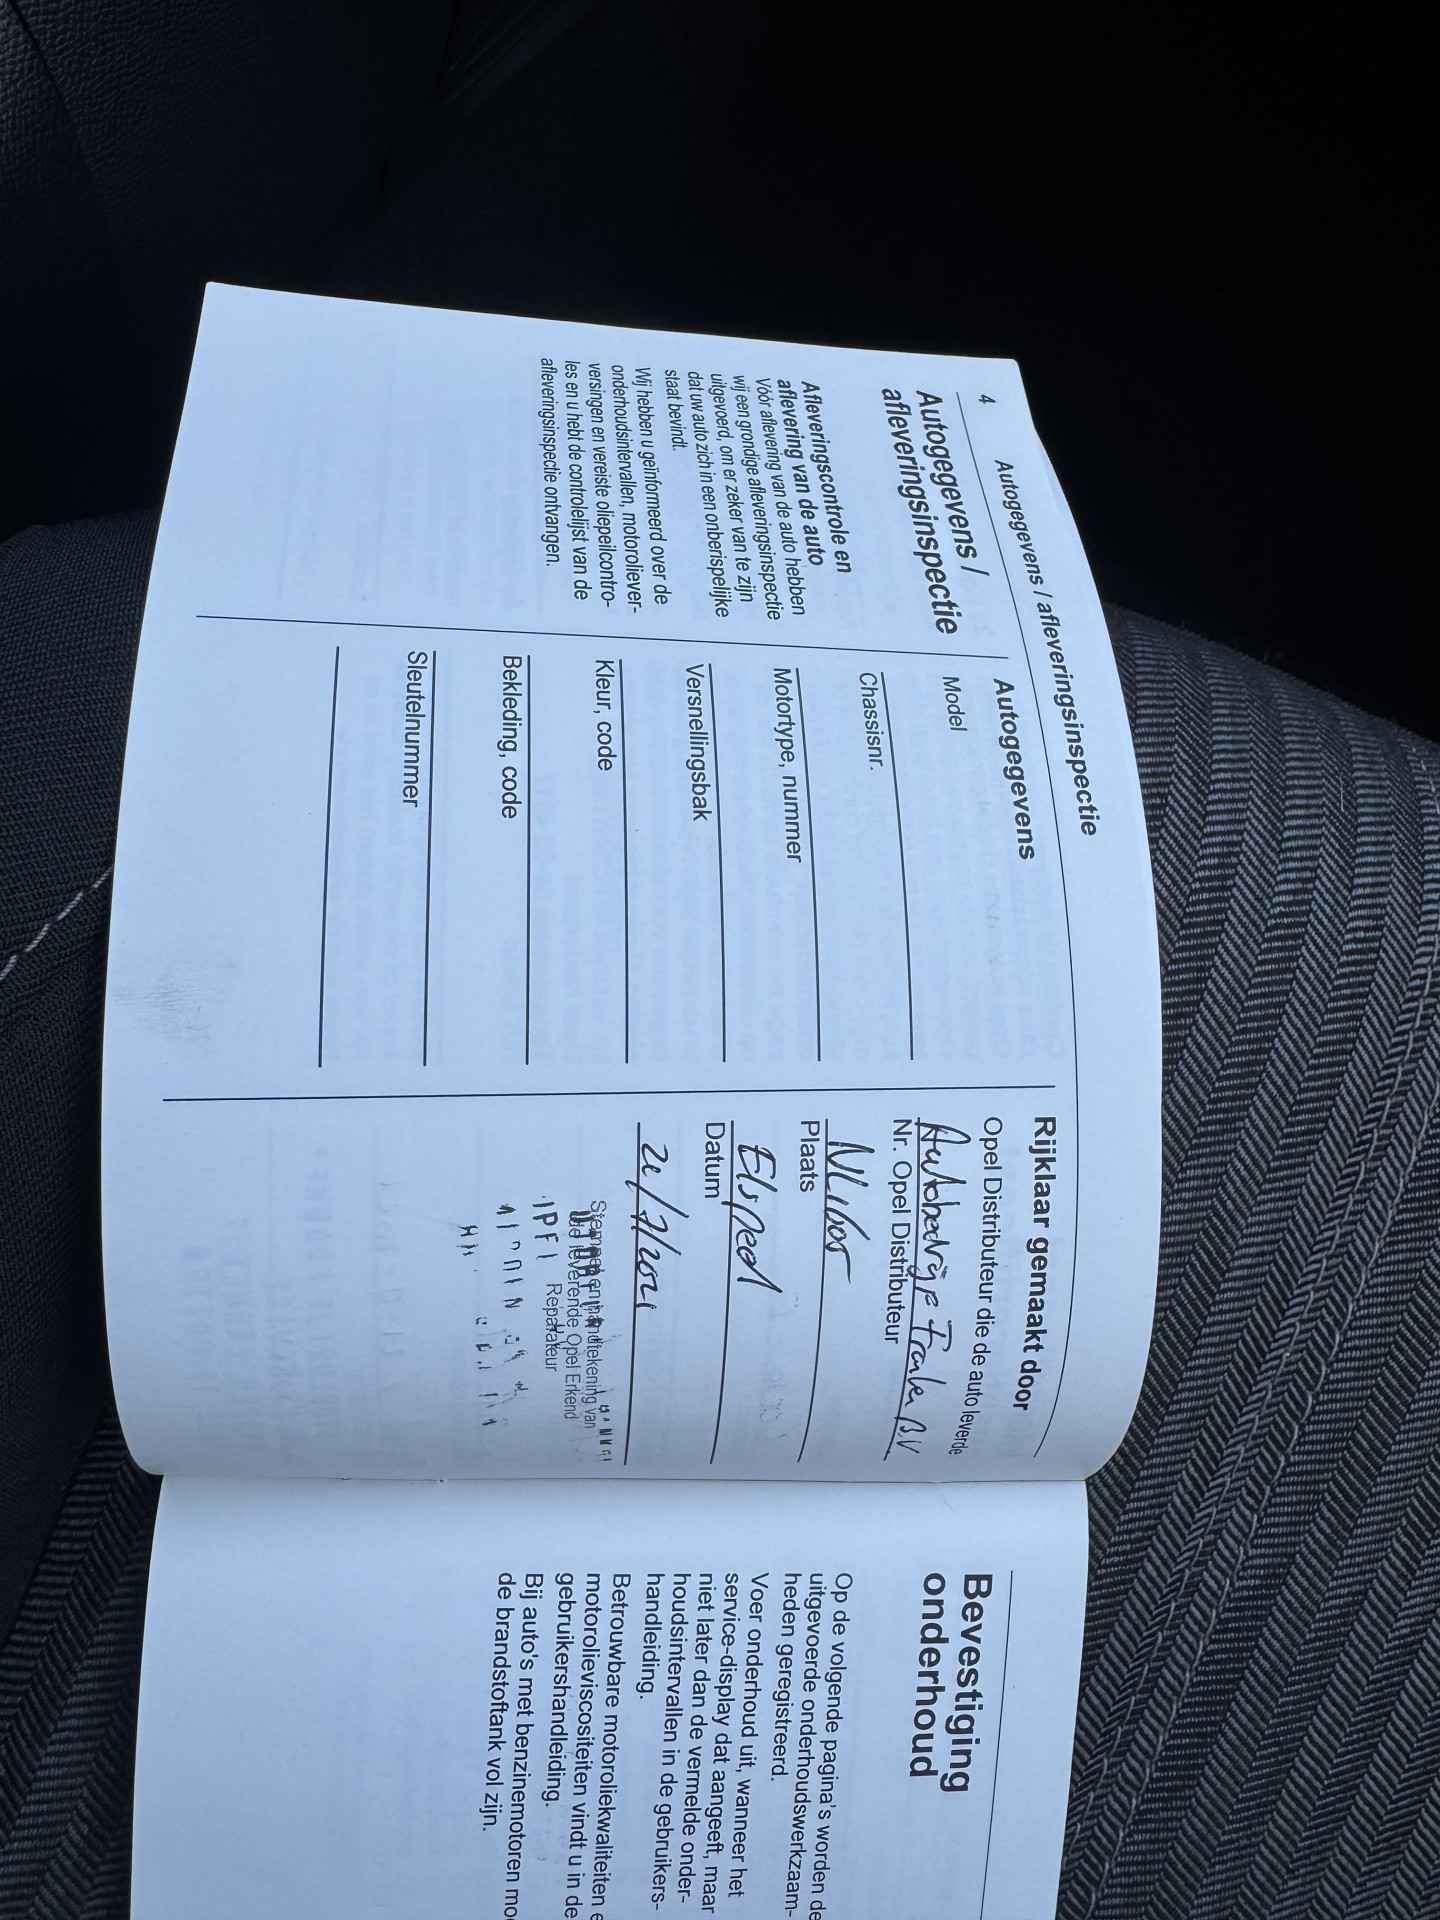 4 Autogegevens / afleveringsinspectie
Autogegevens /
afleveringsinspectie
Afleveringscontrole en
aflevering van de auto
Vóór aflevering van de auto hebben
wij een grondige afleveringsinspectie
uitgevoerd, om er zeker van te zijn
dat uw auto zich in een onberispelijke
staat bevindt.
Wij hebben u geïnformeerd over de
onderhoudsintervallen, motoroliever-
versingen en vereiste oliepeilcontro-
les en u hebt de controlelijst van de
afleveringsinspectie ontvangen.
Autogegevens
Model
Chassisnr.
Motortype, nummer
Versnellingsbak
Kleur, code
Bekleding, code
Sleutelnummer
Rijklaar gemaakt door
Opel Distributeur die de auto leverde
Autobedrijf Franken BV
Nr. Opel Distributeur
Plaats
Elspeet
Datum
Stempel en handtekening van
de leverende Opel Erkend
Reparateur
Bevestiging
onderhoud
Op de volgende pagina's worden de
uitgevoerde onderhoudswerkzaam-
heden geregistreerd.
Voer onderhoud uit, wanneer het
service-display dat aangeeft, maar
niet later dan de vermelde onder-
houdsintervallen in de gebruikers-
handleiding.
Betrouwbare motoroliekwaliteiten
motorolieviscositeiten vindt u in de
gebruikershandleiding.
Bij auto's met benzinemotoren
de brandstoftank vol zijn.